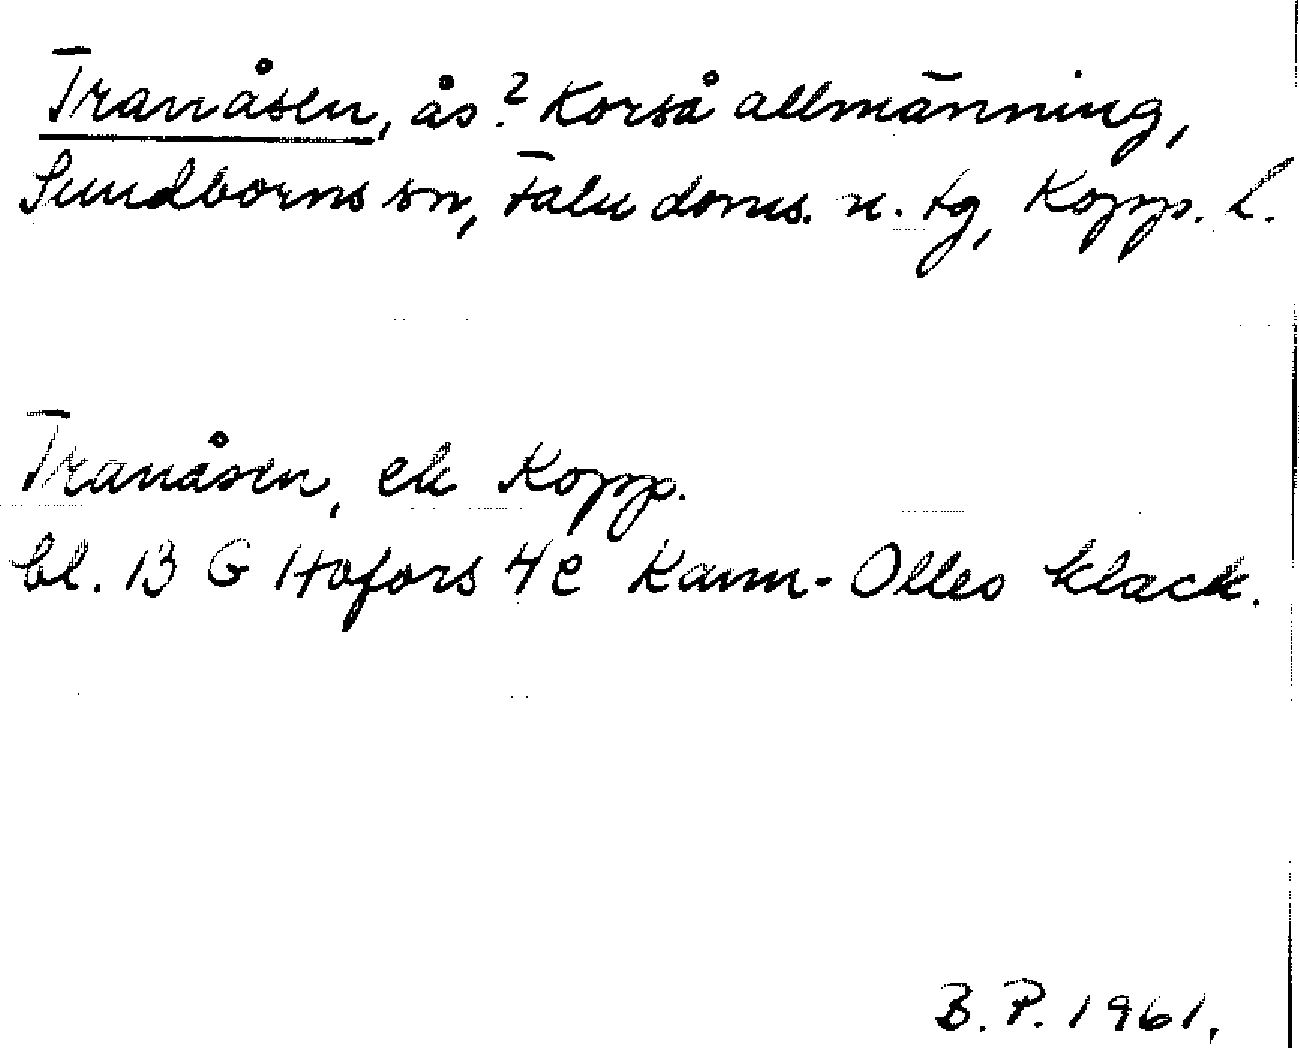 Tranåsen, ås? Korså allmänning,
Sundborns sn, Falu doms. n. tg, Kopp. l.
Tranåsen, ek Kopp.
bl. 13 G Hofors 4e Karm-Olles klack.
B. P. 1961.